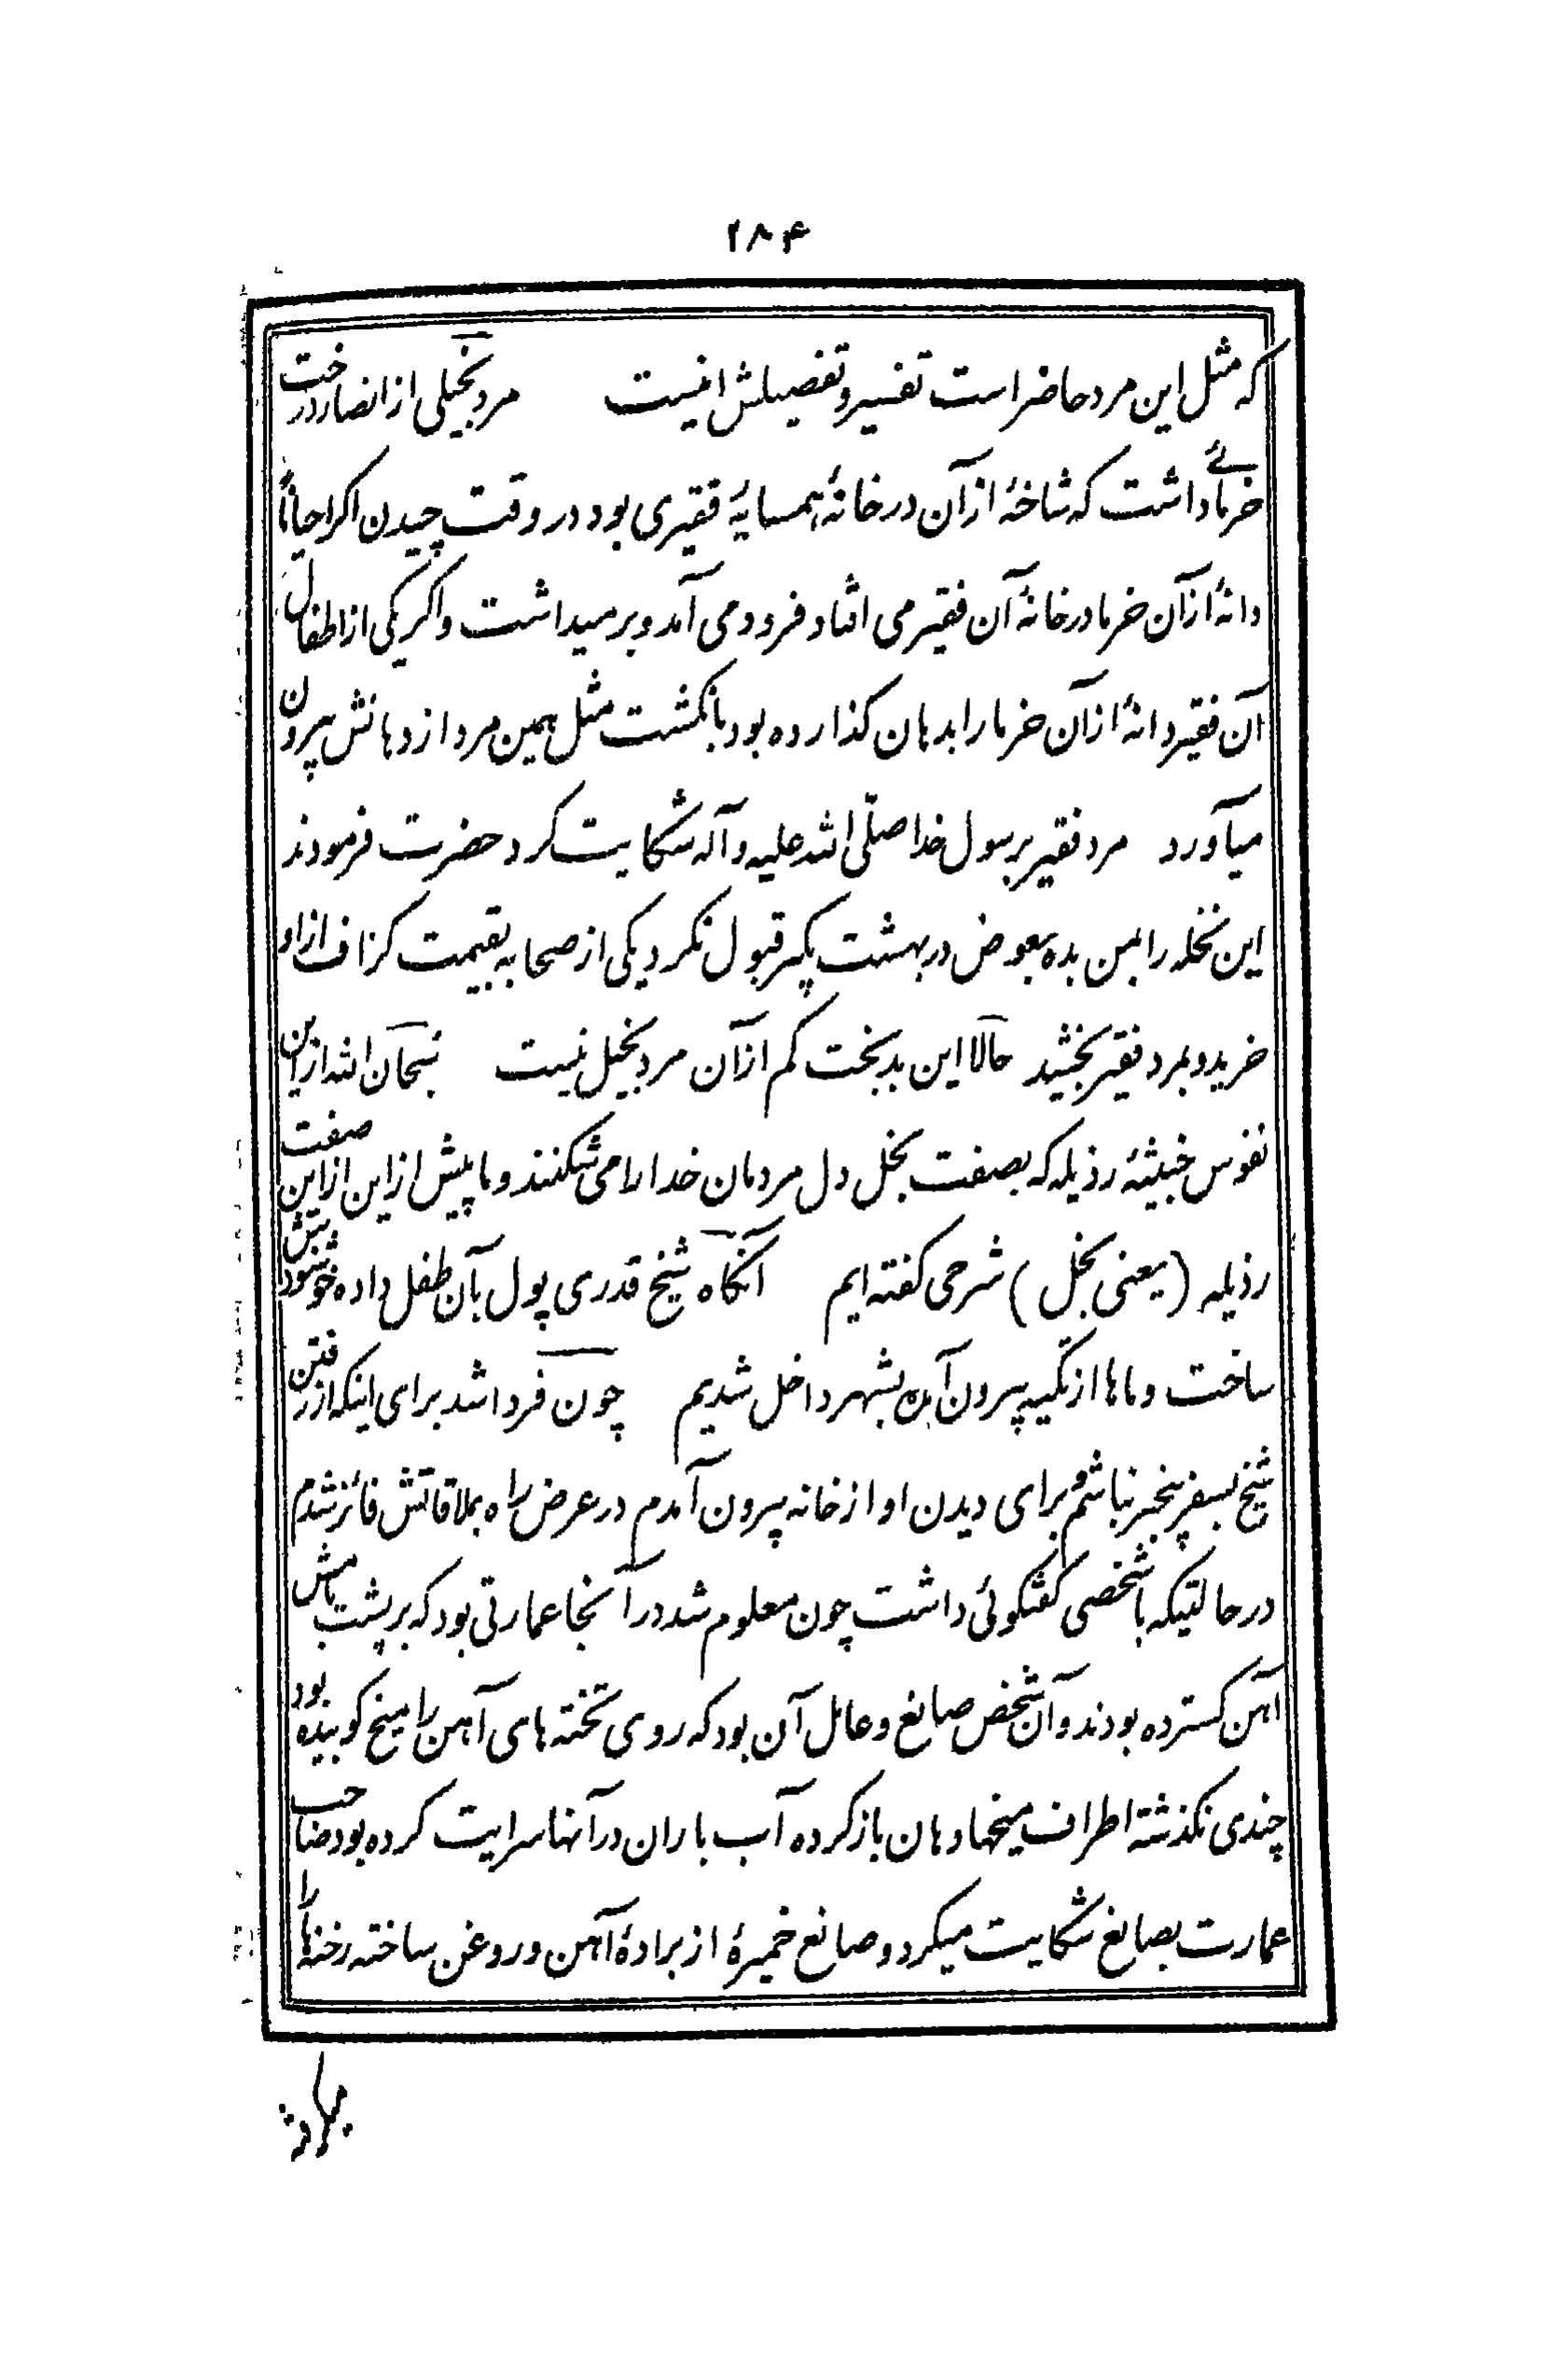 ۲۸۴
که مثل این مرد حاضر است تفسیر و تفصیلش اینست مرد بخیلی از انصار درخت
خرمائے داشت که شاخهٔ از آن در خانهٔ همسایهٔ فقیری بود در وقت چیدن اکر احیاناً
دانهٔ از آن خرما در خانهٔ آن فقیر می افتاد فرود می آمد و بر میداشت و اکر یکی از اطفال
آن فقیر دانهٔ از آن خرما را بدهان کذارده بود با نکشت مثل همین مرد از دهانش بیرون
میآورد مرد فقیر برسول خدا صلّی الله علیه و آله شکایت کرد حضرت فرمودند
این نخله را بمن بده بعوض در بهشت بکیر قبول نکرد یکی از صحابه بقیمت کزاف از او
خرید و بمرد فقیر بخشید حالا این بدبخت کم از آن مرد بخیل نیست سبحان الله از این
نفوس خبیثهٔ رذیله که بصفت بخل دل مردمان خدا را می شکنند و ما پیش از این از این صفت
رذیله (یعنی بخل) شرحی کفته ایم آنکاه شیخ قدری پول بآن طفل داده خوشنودش
ساخت و ماها از تکیه بیرون آمده بشهر داخل شدیم چون فردا شد برای اینکه از رفتن
شیخ بسفر بیخبر نباشم برای دیدن او از خانه بیرون آمدم در عرض راه بملاقاتش فائز شدم
در حالتیکه با شخصی کفتکوئی داشت چون معلوم شد در آنجا عمارتی بود که بر پشت بامش
آهن کسترده بودند و آن شخص صانع و عامل آن بود که روی تخته های آهن را میخ کوبیده بود
چندی نکذشته اطراف میخها دهان باز کرده آب باران در آنها سرایت کرده بود صاحب
عمارت بصانع شکایت میکرد و صانع خمیرهٔ از برادهٔ آهن و روغن ساخته رخنها را